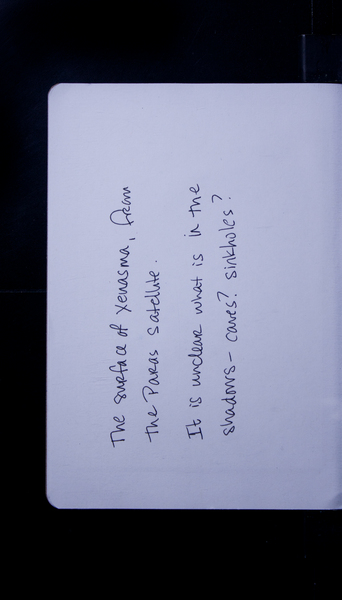 The surface of Xenasma, from
the Paras Satellite.
It is unclear what is in the
shadows- caves? sinkholes?